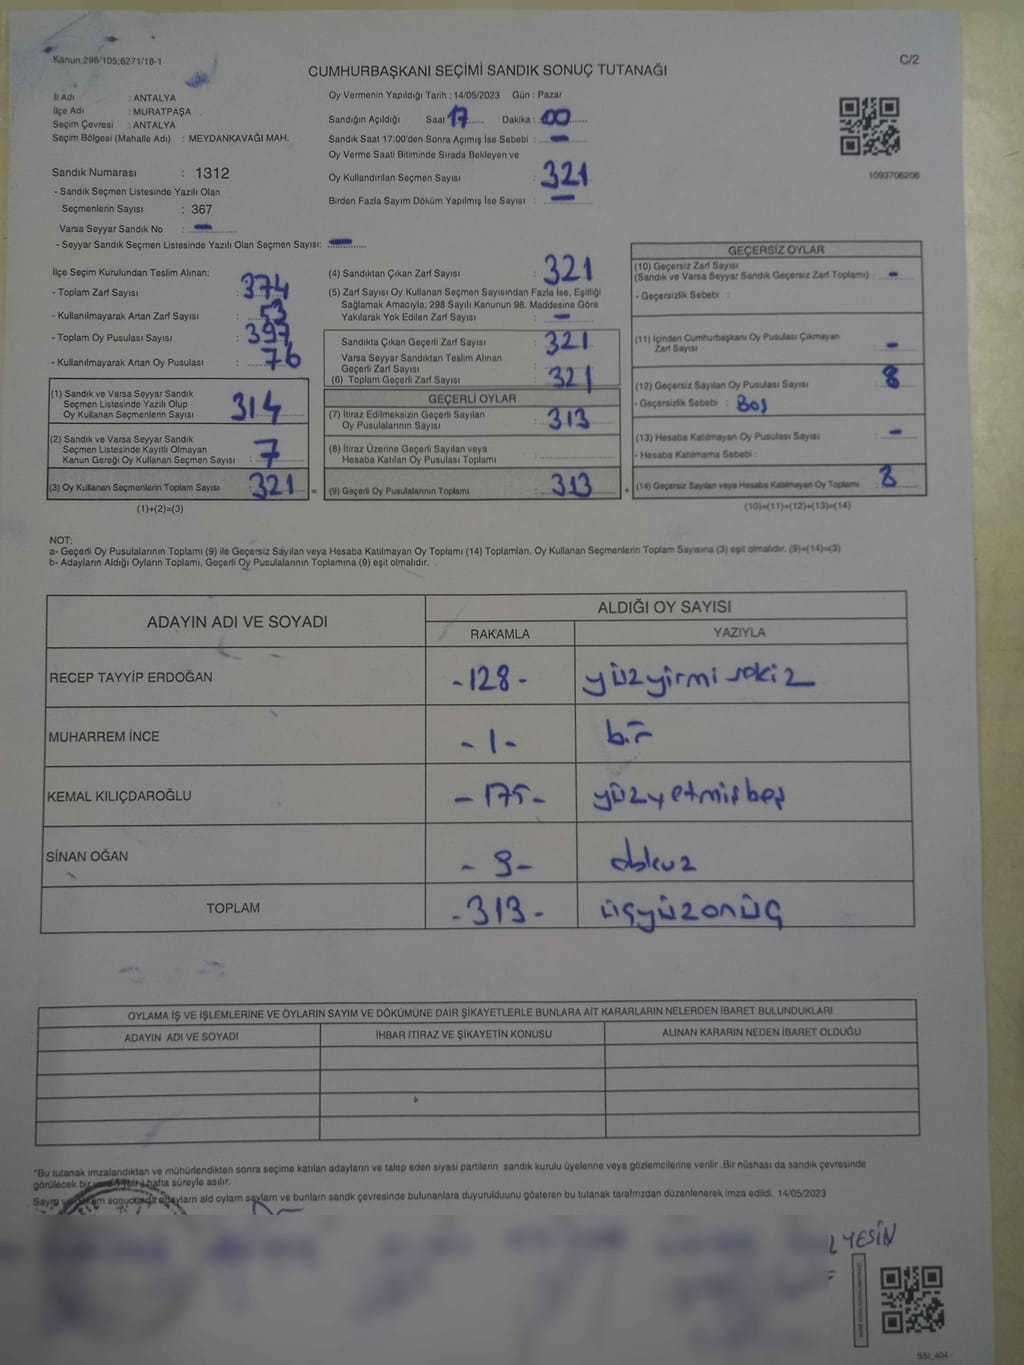 Kanun.298/105;6271/18-1
C/2
CUMHURBAŞKANI SEÇİMİ SANDIK SONUÇ TUTANAĞI
İl Adı : ANTALYA
İlçe Adı : MURATPAŞA
Seçim Çevresi : ANTALYA
Seçim Bölgesi (Mahalle Adı) : MEYDANKAVAĞI MAH.
Sandık Numarası : 1312
- Sandık Seçmen Listesinde Yazılı Olan
Seçmenlerin Sayısı : 367
Varsa Seyyar Sandık No : —
- Seyyar Sandık Seçmen Listesinde Yazılı Olan Seçmen Sayısı: —
Oy Vermenin Yapıldığı Tarih : 14/05/2023 Gün : Pazar
Sandığın Açıldığı Saat 17 Dakika : 00
Sandık Saat 17:00'den Sonra Açımış İse Sebebi : —
Oy Verme Saati Bitiminde Sırada Bekleyen ve
Oy Kullandırılan Seçmen Sayısı : 321
Birden Fazla Sayım Döküm Yapılmış İse Sayısı : —
1093706206
İlçe Seçim Kurulundan Teslim Alınan;
- Toplam Zarf Sayısı : 374
- Kullanılmayarak Artan Zarf Sayısı : 53
- Toplam Oy Pusulası Sayısı : 397
- Kullanılmayarak Artan Oy Pusulası : 76
(1) Sandık ve Varsa Seyyar Sandık
Seçmen Listesinde Yazılı Olup
Oy Kullanan Seçmenlerin Sayısı : 314
(2) Sandık ve Varsa Seyyar Sandık
Seçmen Listesinde Kayıtlı Olmayan
Kanun Gereği Oy Kullanan Seçmen Sayısı : 7
(3) Oy Kullanan Seçmenlerin Toplam Sayısı : 321 =
(1)+(2)=(3)
(4) Sandıktan Çıkan Zarf Sayısı : 321
(5) Zarf Sayısı Oy Kullanan Seçmen Sayısından Fazla İse, Eşitliği
Sağlamak Amacıyla; 298 Sayılı Kanunun 98. Maddesine Göre
Yakılarak Yok Edilen Zarf Sayısı : —
Sandıkta Çıkan Geçerli Zarf Sayısı : 321
Varsa Seyyar Sandıktan Teslim Alınan
Geçerli Zarf Sayısı
(6) Toplam Geçerli Zarf Sayısı : 321
GEÇERLİ OYLAR
(7) İtiraz Edilmeksizin Geçerli Sayılan
Oy Pusulalarının Sayısı : 313
(8) İtiraz Üzerine Geçerli Sayılan veya
Hesaba Katılan Oy Pusulası Toplamı :
(9) Geçerli Oy Pusulalarının Toplamı : 313 +
GEÇERSİZ OYLAR
(10) Geçersiz Zarf Sayısı
(Sandık ve Varsa Seyyar Sandık Geçersiz Zarf Toplamı) : -
- Geçersizlik Sebebi :
(11) İçinden Cumhurbaşkanı Oy Pusulası Çıkmayan
Zarf Sayısı : -
(12) Geçersiz Sayılan Oy Pusulası Sayısı : 8
- Geçersizlik Sebebi : Boş
(13) Hesaba Katılmayan Oy Pusulası Sayısı : -
- Hesaba Katılmama Sebebi :
(14) Geçersiz Sayılan veya Hesaba Katılmayan Oy Toplamı : 8
(10)+(11)+(12)+(13)=(14)
NOT:
a- Geçerli Oy Pusulalarının Toplamı (9) ile Geçersiz Sayılan veya Hesaba Katılmayan Oy Toplamı (14) Toplamları, Oy Kullanan Seçmenlerin Toplam Sayısına (3) eşit olmalıdır. (9)+(14)=(3)
b- Adayların Aldığı Oyların Toplamı, Geçerli Oy Pusulalarının Toplamına (9) eşit olmalıdır.
ADAYIN ADI VE SOYADI
ALDIĞI OY SAYISI
RAKAMLA YAZIYLA
RECEP TAYYİP ERDOĞAN -128- yüzyirmi sekiz
MUHARREM İNCE -1- bir
KEMAL KILIÇDAROĞLU -175- yüzyetmişbeş
SİNAN OĞAN -9- dokuz
TOPLAM -313- üçyüzonüç
OYLAMA İŞ VE İŞLEMLERİNE VE OYLARIN SAYIM VE DÖKÜMÜNE DAİR ŞİKAYETLERLE BUNLARA AİT KARARLARIN NELERDEN İBARET BULUNDUKLARI
ADAYIN ADI VE SOYADI İHBAR İTİRAZ VE ŞİKAYETİN KONUSU ALINAN KARARIN NEDEN İBARET OLDUĞU
*Bu tutanak imzalandıktan ve mühürlendikten sonra seçime katılan adayların ve talep eden siyasi partilerin sandık kurulu üyelerine veya gözlemcilerine verilir .Bir nüshası da sandık çevresinde
görülecek bir yere 1(bir) hafta süreyle asılır.
Sayım ve döküm sonucunda adayların ald oyların sayları ve bunların sandık çevresinde bulunanlara duyurulduunu gösteren bu tutanak tarafmzdan düzenlenerek imza edildi. 14/05/2023
YESİN
SSI_404